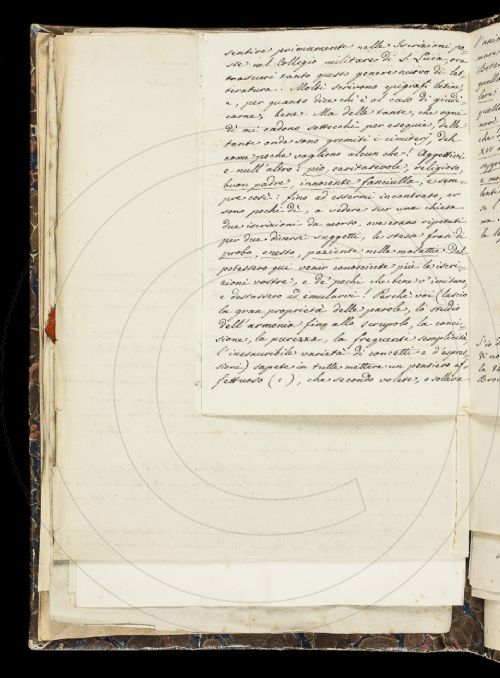 sentire primamente nelle Iscrizioni po=
ste nel Collegio militare di S. Luca, ora
trascuri tanto questo genere nuovo di let=
teratura. Molti scrivono epigrafi latine,
e, per quanto dice chi è al caso di giudi=
carne, bene. Ma delle tante, che ogni
dì mi cadono sottocchi per esequie, delle
tante onde sono gremiti i cimiteri, deh
come poche vagliono alcun che! Aggettivi
e null'altro: pio, caritatevole, religioso,
buon padre, innocente fanciulla, e sem=
pre così: fino ad essermi incontrato, or
sono pochi dì, a vedere sur una chiesa
due iscrizioni da morto, ove erano ripetuti
per due diversi suggetti, le stesse frasi di
probo, onesto, paziente nelle malattie. Deh
potessero qui venir conosciute più le iscri=
zioni vostre, e de' pochi che bene v'imitano,
e destassero ad emularvi! Perchè voi (lascio
la gran proprietà delle parole, lo studio
dell'armonia fino allo scrupolo, la conci=
sione, la purezza, la frequente semplicità
l'inesauribile varietà di concetti e d'espres
sioni) sapete in tutte mettere un pensiero af=
fettuoso (1), che secondo volete, o solleva